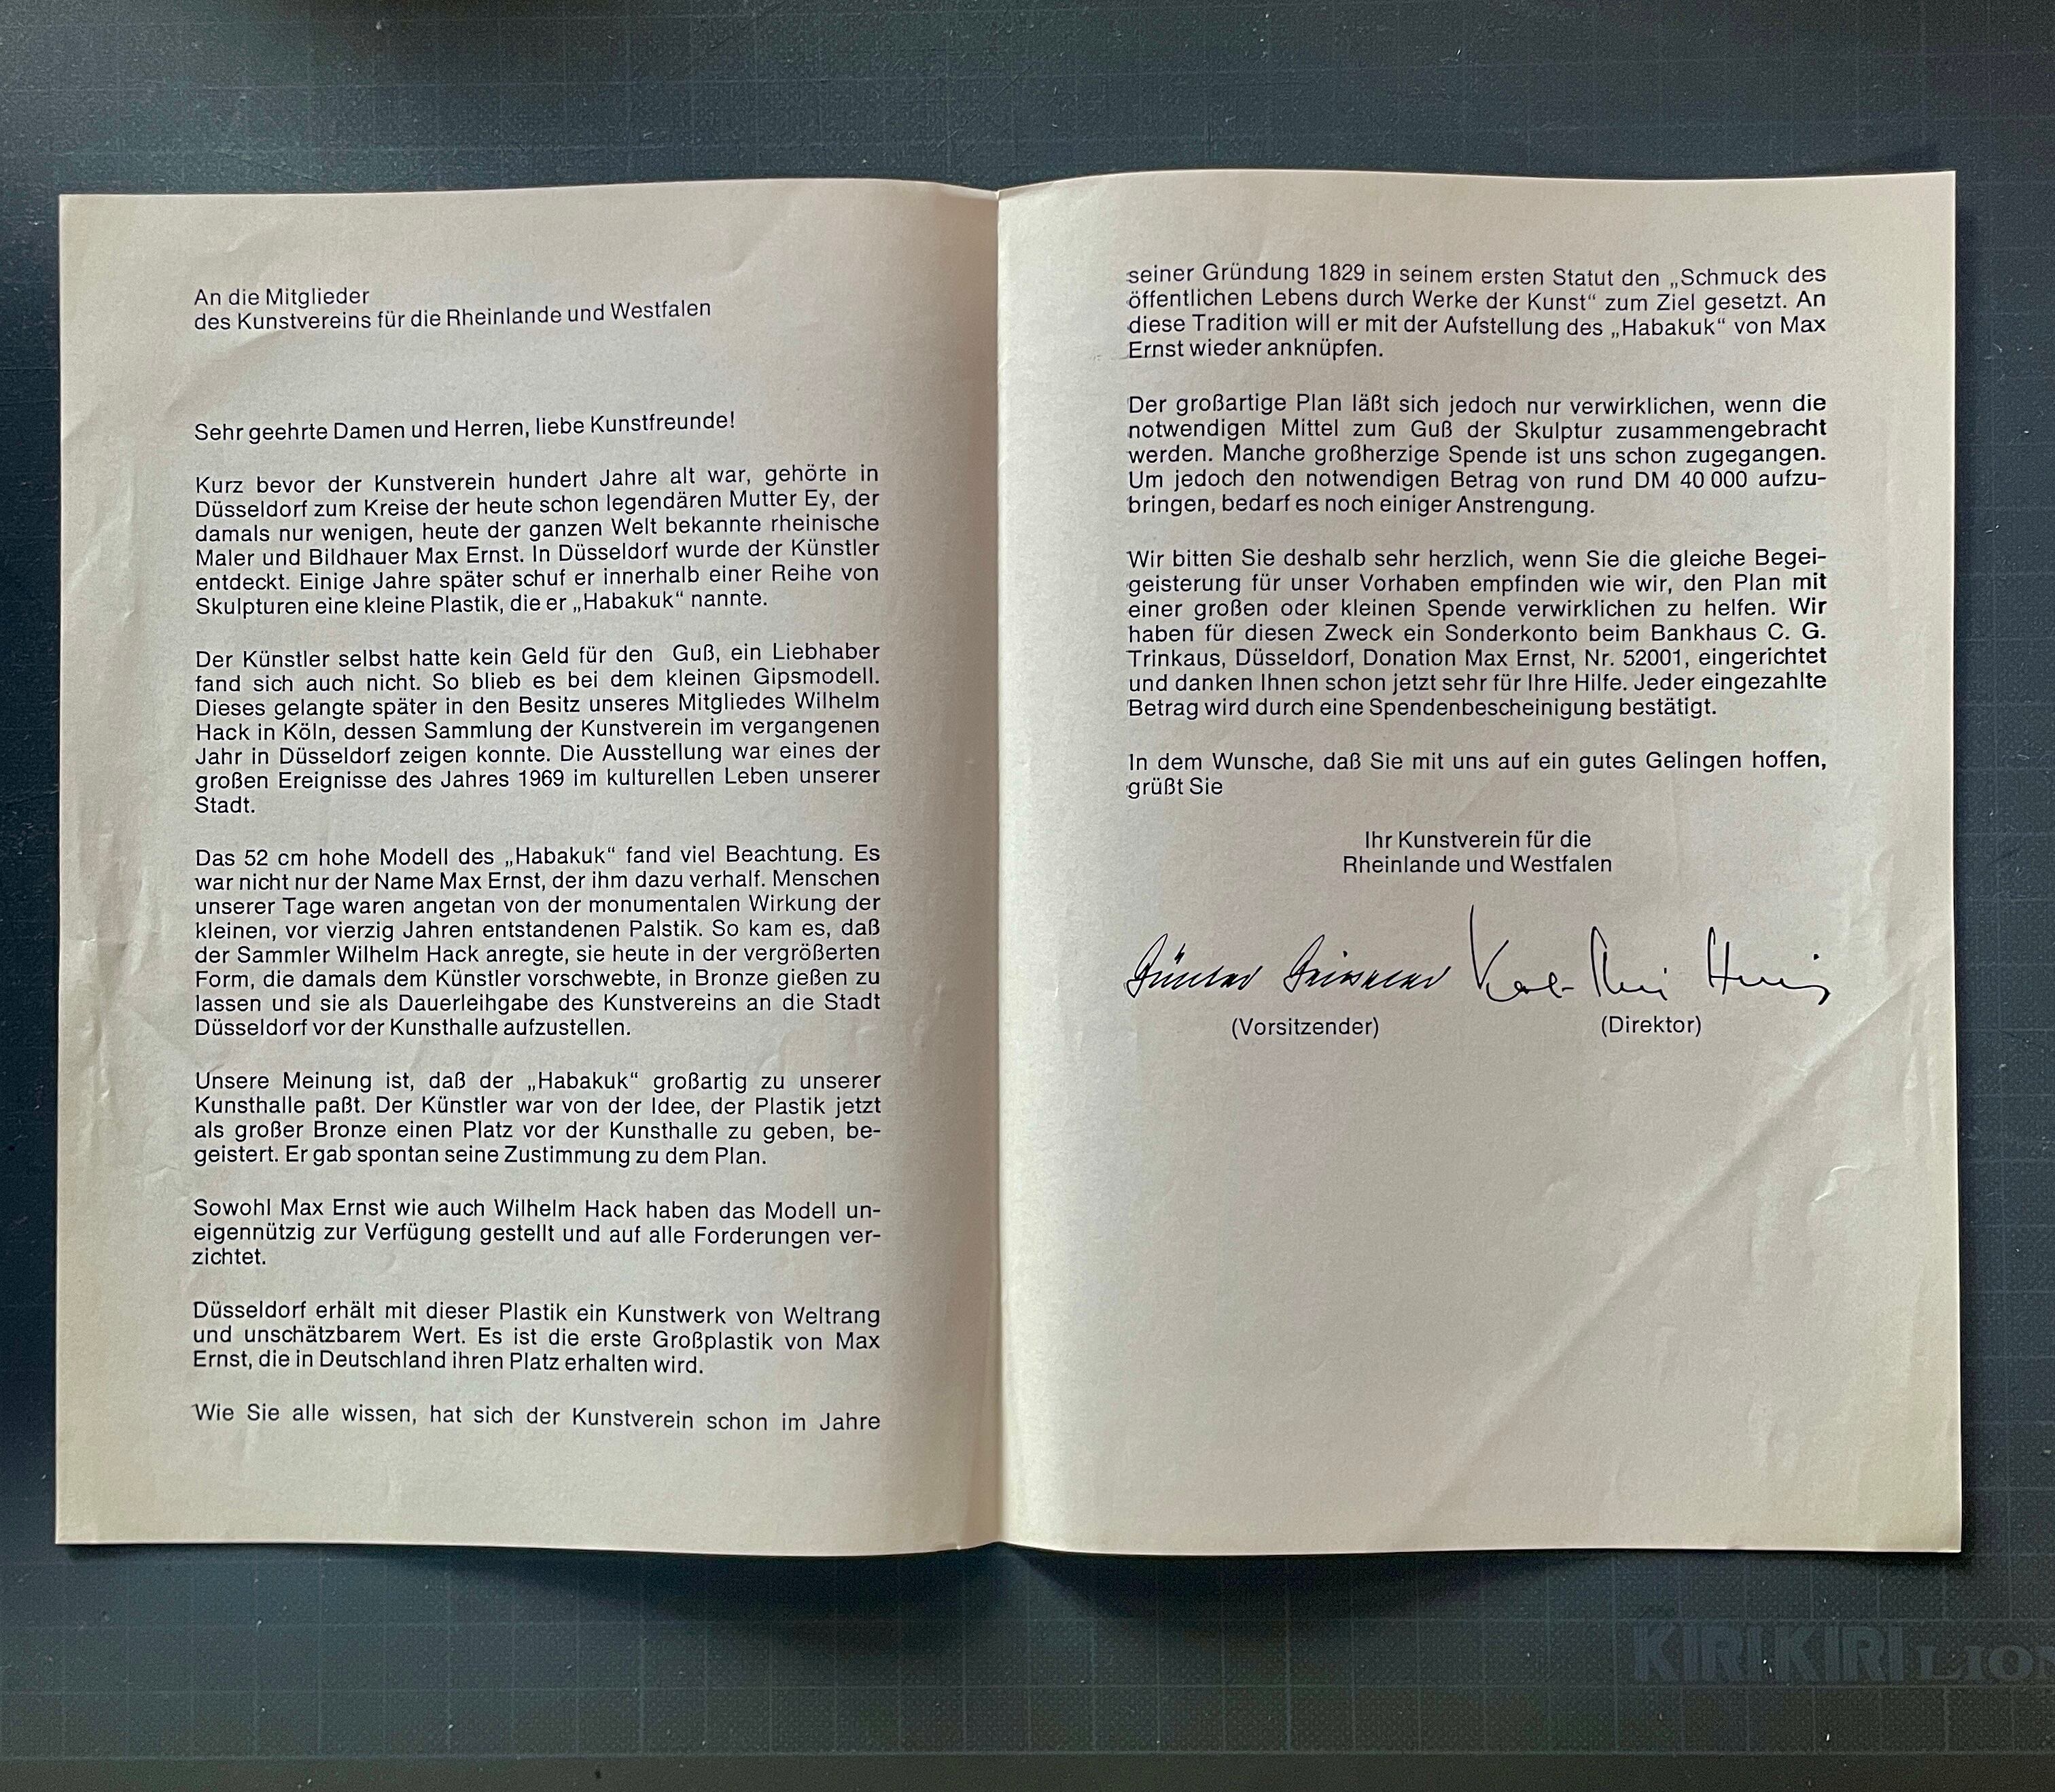 An die Mitglieder
des Kunstvereins für die Rheinlande und Westfalen
Sehr geehrte Damen und Herren, liebe Kunstfreunde!
Kurz bevor der Kunstverein hundert Jahre alt war, gehörte in
Düsseldorf zum Kreise der heute schon legendären Mutter Ey, der
damals nur wenigen, heute der ganzen Welt bekannte rheinische
Maler und Bildhauer Max Ernst. In Düsseldorf wurde der Künstler
entdeckt. Einige Jahre später schuf er innerhalb einer Reihe von
Skulpturen eine kleine Plastik, die er „Habakuk“ nannte.
Der Künstler selbst hatte kein Geld für den Guß, ein Liebhaber
fand sich auch nicht. So blieb es bei dem kleinen Gipsmodell.
Dieses gelangte später in den Besitz unseres Mitgliedes Wilhelm
Hack in Köln, dessen Sammlung der Kunstverein im vergangenen
Jahr in Düsseldorf zeigen konnte. Die Ausstellung war eines der
großen Ereignisse des Jahres 1969 im kulturellen Leben unserer
Stadt.
Das 52 cm hohe Modell des „Habakuk“ fand viel Beachtung. Es
war nicht nur der Name Max Ernst, der ihm dazu verhalf. Menschen
unserer Tage waren angetan von der monumentalen Wirkung der
kleinen, vor vierzig Jahren entstandenen Palstik. So kam es, daß
der Sammler Wilhelm Hack anregte, sie heute in der vergrößerten
Form, die damals dem Künstler vorschwebte, in Bronze gießen zu
lassen und sie als Dauerleihgabe des Kunstvereins an die Stadt
Düsseldorf vor der Kunsthalle aufzustellen.
Unsere Meinung ist, daß der „Habakuk“ großartig zu unserer
Kunsthalle paßt. Der Künstler war von der Idee, der Plastik jetzt
als großer Bronze einen Platz vor der Kunsthalle zu geben, be-
geistert. Er gab spontan seine Zustimmung zu dem Plan.
Sowohl Max Ernst wie auch Wilhelm Hack haben das Modell un-
eigennützig zur Verfügung gestellt und auf alle Forderungen ver-
zichtet.
Düsseldorf erhält mit dieser Plastik ein Kunstwerk von Weltrang
und unschätzbarem Wert. Es ist die erste Großplastik von Max
Ernst, die in Deutschland ihren Platz erhalten wird.
Wie Sie alle wissen, hat sich der Kunstverein schon im Jahre
seiner Gründung 1829 in seinem ersten Statut den „Schmuck des
öffentlichen Lebens durch Werke der Kunst“ zum Ziel gesetzt. An
diese Tradition will er mit der Aufstellung des „Habakuk“ von Max
Ernst wieder anknüpfen.
Der großartige Plan läßt sich jedoch nur verwirklichen, wenn die
notwendigen Mittel zum Guß der Skulptur zusammengebracht
werden. Manche großherzige Spende ist uns schon zugegangen.
Um jedoch den notwendigen Betrag von rund DM 40 000 aufzu-
bringen, bedarf es noch einiger Anstrengung.
Wir bitten Sie deshalb sehr herzlich, wenn Sie die gleiche Begei-
geisterung für unser Vorhaben empfinden wie wir, den Plan mit
einer großen oder kleinen Spende verwirklichen zu helfen. Wir
haben für diesen Zweck ein Sonderkonto beim Bankhaus C. G.
Trinkaus, Düsseldorf, Donation Max Ernst, Nr. 52001, eingerichtet
und danken Ihnen schon jetzt sehr für Ihre Hilfe. Jeder eingezahlte
Betrag wird durch eine Spendenbescheinigung bestätigt.
In dem Wunsche, daß Sie mit uns auf ein gutes Gelingen hoffen,
grüßt Sie
Ihr Kunstverein für die
Rheinlande und Westfalen
(Vorsitzender) (Direktor)
KIRIKIRI LION